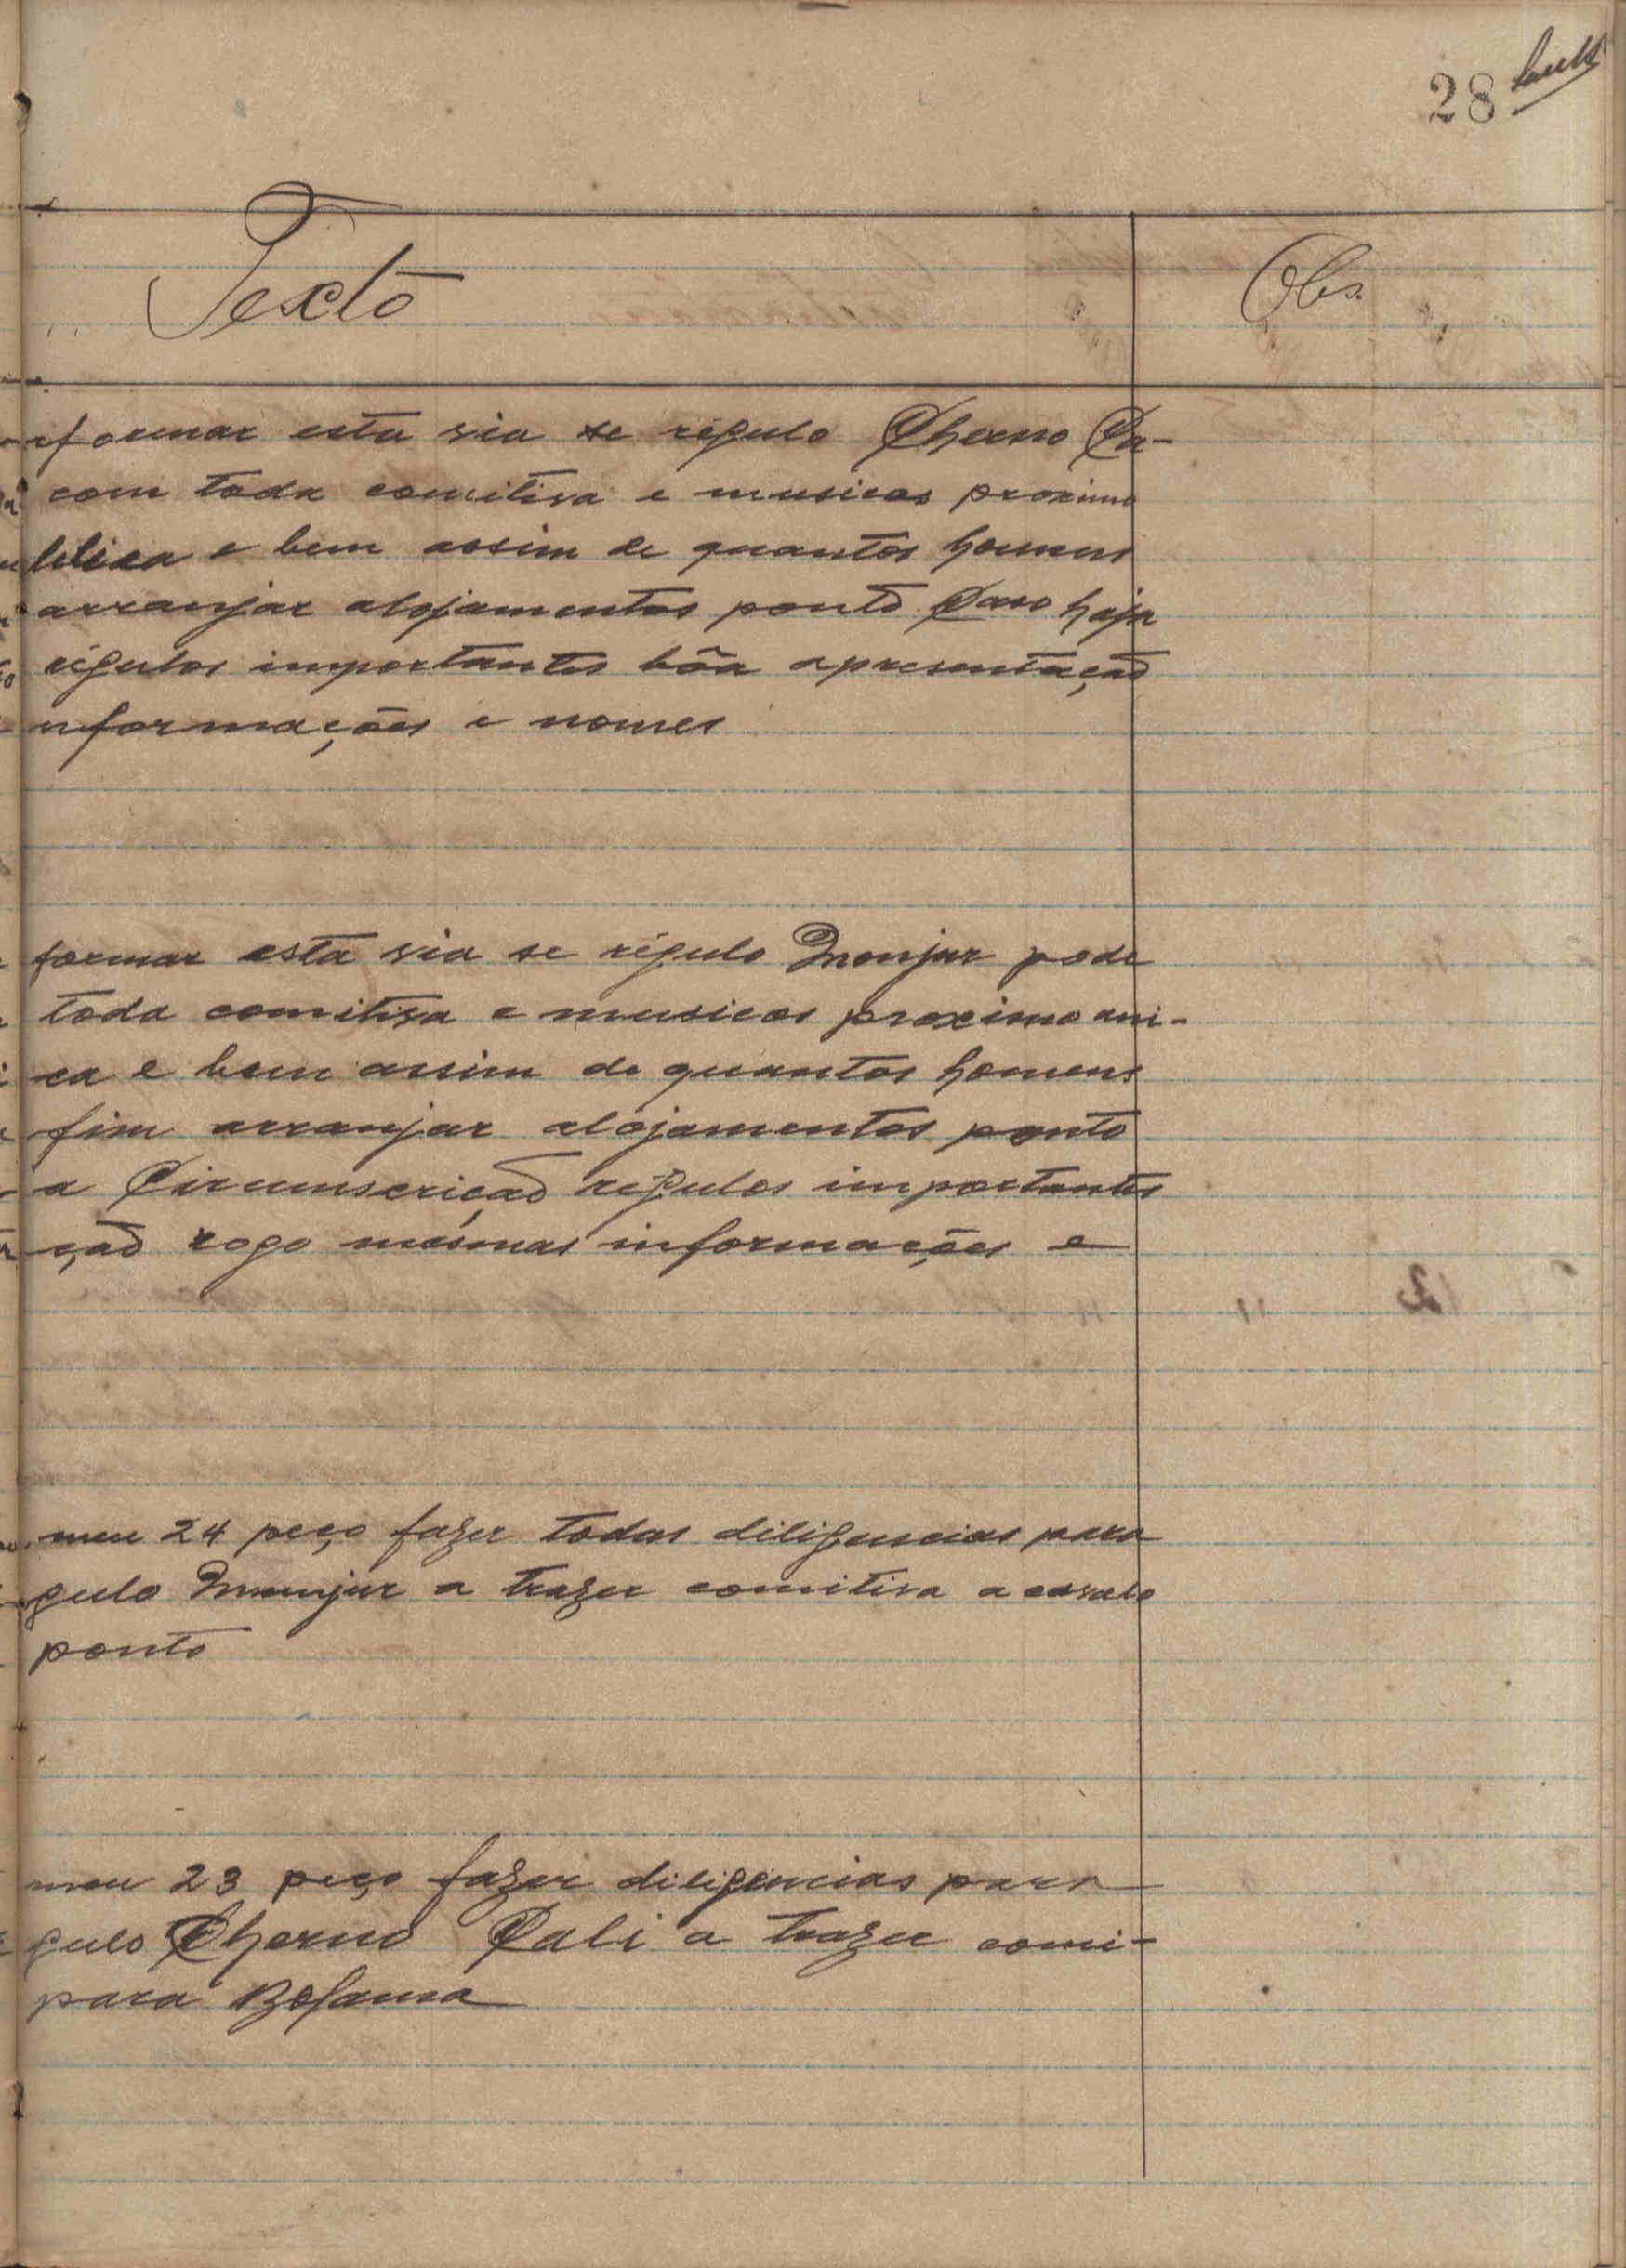 28
Texto
Obs.
nformar esta via se régulo Cherno Ca-
com toda comitiva e musicas proximo
blica e bem assim de quantos homens
arranjar alojamentos ponto Caso haja
régulos importantes bôa apresentação
nformações e nomes
formar esta via se régulo Monjur pode
toda comitiva e musicas proximo ani-
ca e bem assim de quantos homens
fim arranjar alojamentos ponto
a Circumscrição régulos importantes
ção rogo mesmas informações e
meu 24 peço fazer todas diligencias para
gulo Monjur a trazer comitiva a cavalo
ponto
meu 23 peço fazer diligencias para
gulo Cherno Cali a trazer comi-
para Bolama